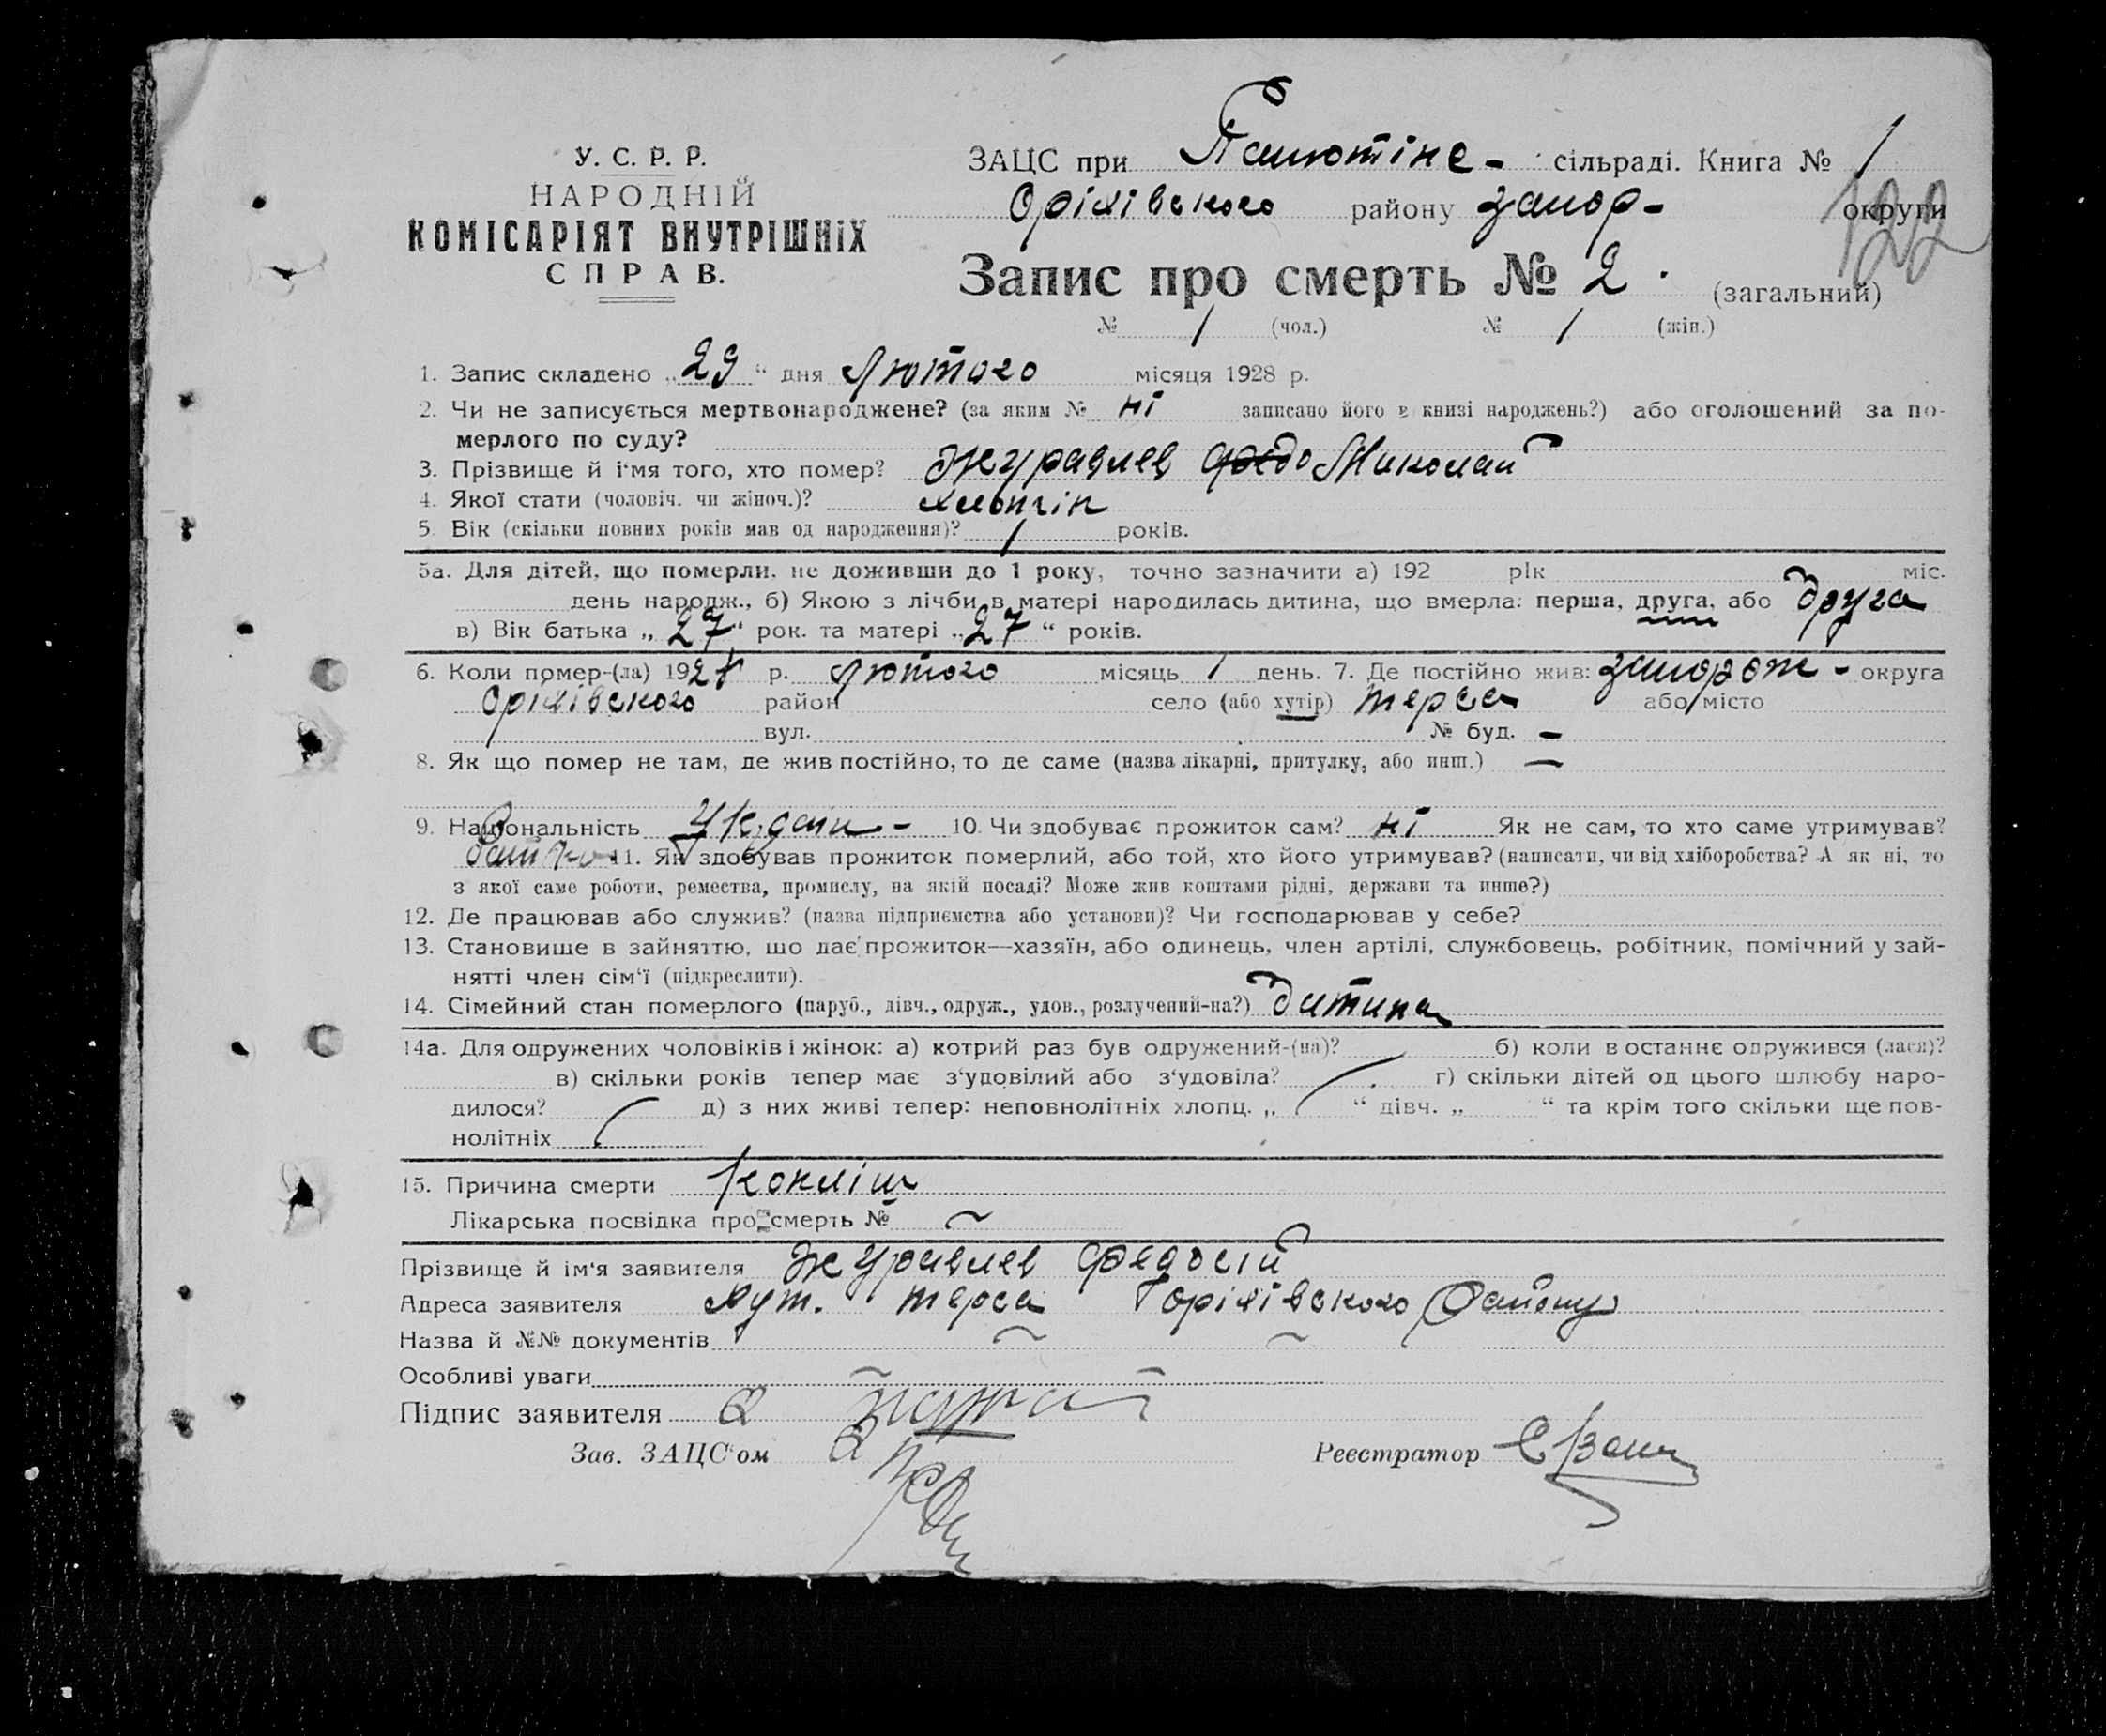 У. С. Р. Р.
НАРОДНІЙ
КОМІСАРІЯТ ВНУТРІШНІХ
СПРАВ.
ЗАЦС при сільраді. Книга № 1
Оріхівського району Запор- округи
122
Запис про смерть № 2. (загальний)
№ 1 (чол.) № / (жін.)
1. Запис складено „29“ дня Лютого місяця 1928 р.
2. Чи не записується мертвонароджене? (за яким № ні записано його в книзі народжень?) або оголошений за по-
мерлого по суду?
3. Прізвище й і'мя того, хто помер? Журавлев Федо Миколай
4. Якої стати (чоловіч. чи жіноч.)? хлопчік
5. Вік (скільки повних років мав од народження)? 1 років.
5а. Для дітей, що померли, не доживши до 1 року, точно зазначити а) 192 рік міс.
день народж., б) Якою з лічби в матері народилась дитина, що вмерла: перша, друга, або друга
в) Вік батька „27“ рок. та матері „27“ років.
6. Коли помер-(ла) 1928 р. лютого місяць 1 день. 7. Де постійно жив: Запорож- округа
Оріхівського район село (або хутір) терса або місто
вул. № буд. —
8. Як що помер не там, де жив постійно, то де саме (назва лікарні, притулку, або инш.) —
9. Національність Україн- 10. Чи здобуває прожиток сам? ні Як не сам, то хто саме утримував?
батько 11. Як здобував прожиток померлий, або той, хто його утримував? (написати, чи від хліборобства? А як ні, то
з якої саме роботи, ремества, промислу, на якій посаді? Може жив коштами рідні, держави та инше?)
12. Де працював або служив? (назва підприємства або установи)? Чи господарював у себе?
13. Становище в зайняттю, що дає прожиток—хазяїн, або одинець, член артілі, службовець, робітник, помічний у зай-
нятті член сім'ї (підкреслити).
14. Сімейний стан померлого (паруб., дівч., одруж., удов., розлучений-на?) дитина
14а. Для одружених чоловіків і жінок: а) котрий раз був одружений-(на)? б) коли в останнє одружився (лася)?
в) скільки років тепер має з'удовілий або з'удовіла? г) скільки дітей од цього шлюбу наро-
дилося? д) з них живі тепер: неповнолітніх хлопц. „ “ дівч. „ “ та крім того скільки ще пов-
нолітніх
15. Причина смерти
Лікарська посвідка про смерть №
Прізвище й ім'я заявителя Журавлев Федосій
Адреса заявителя Хут. терса Горіхівського Району
Назва й №№ документів
Особливі уваги
Підпис заявителя
Зав. ЗАЦС'ом Реєстратор